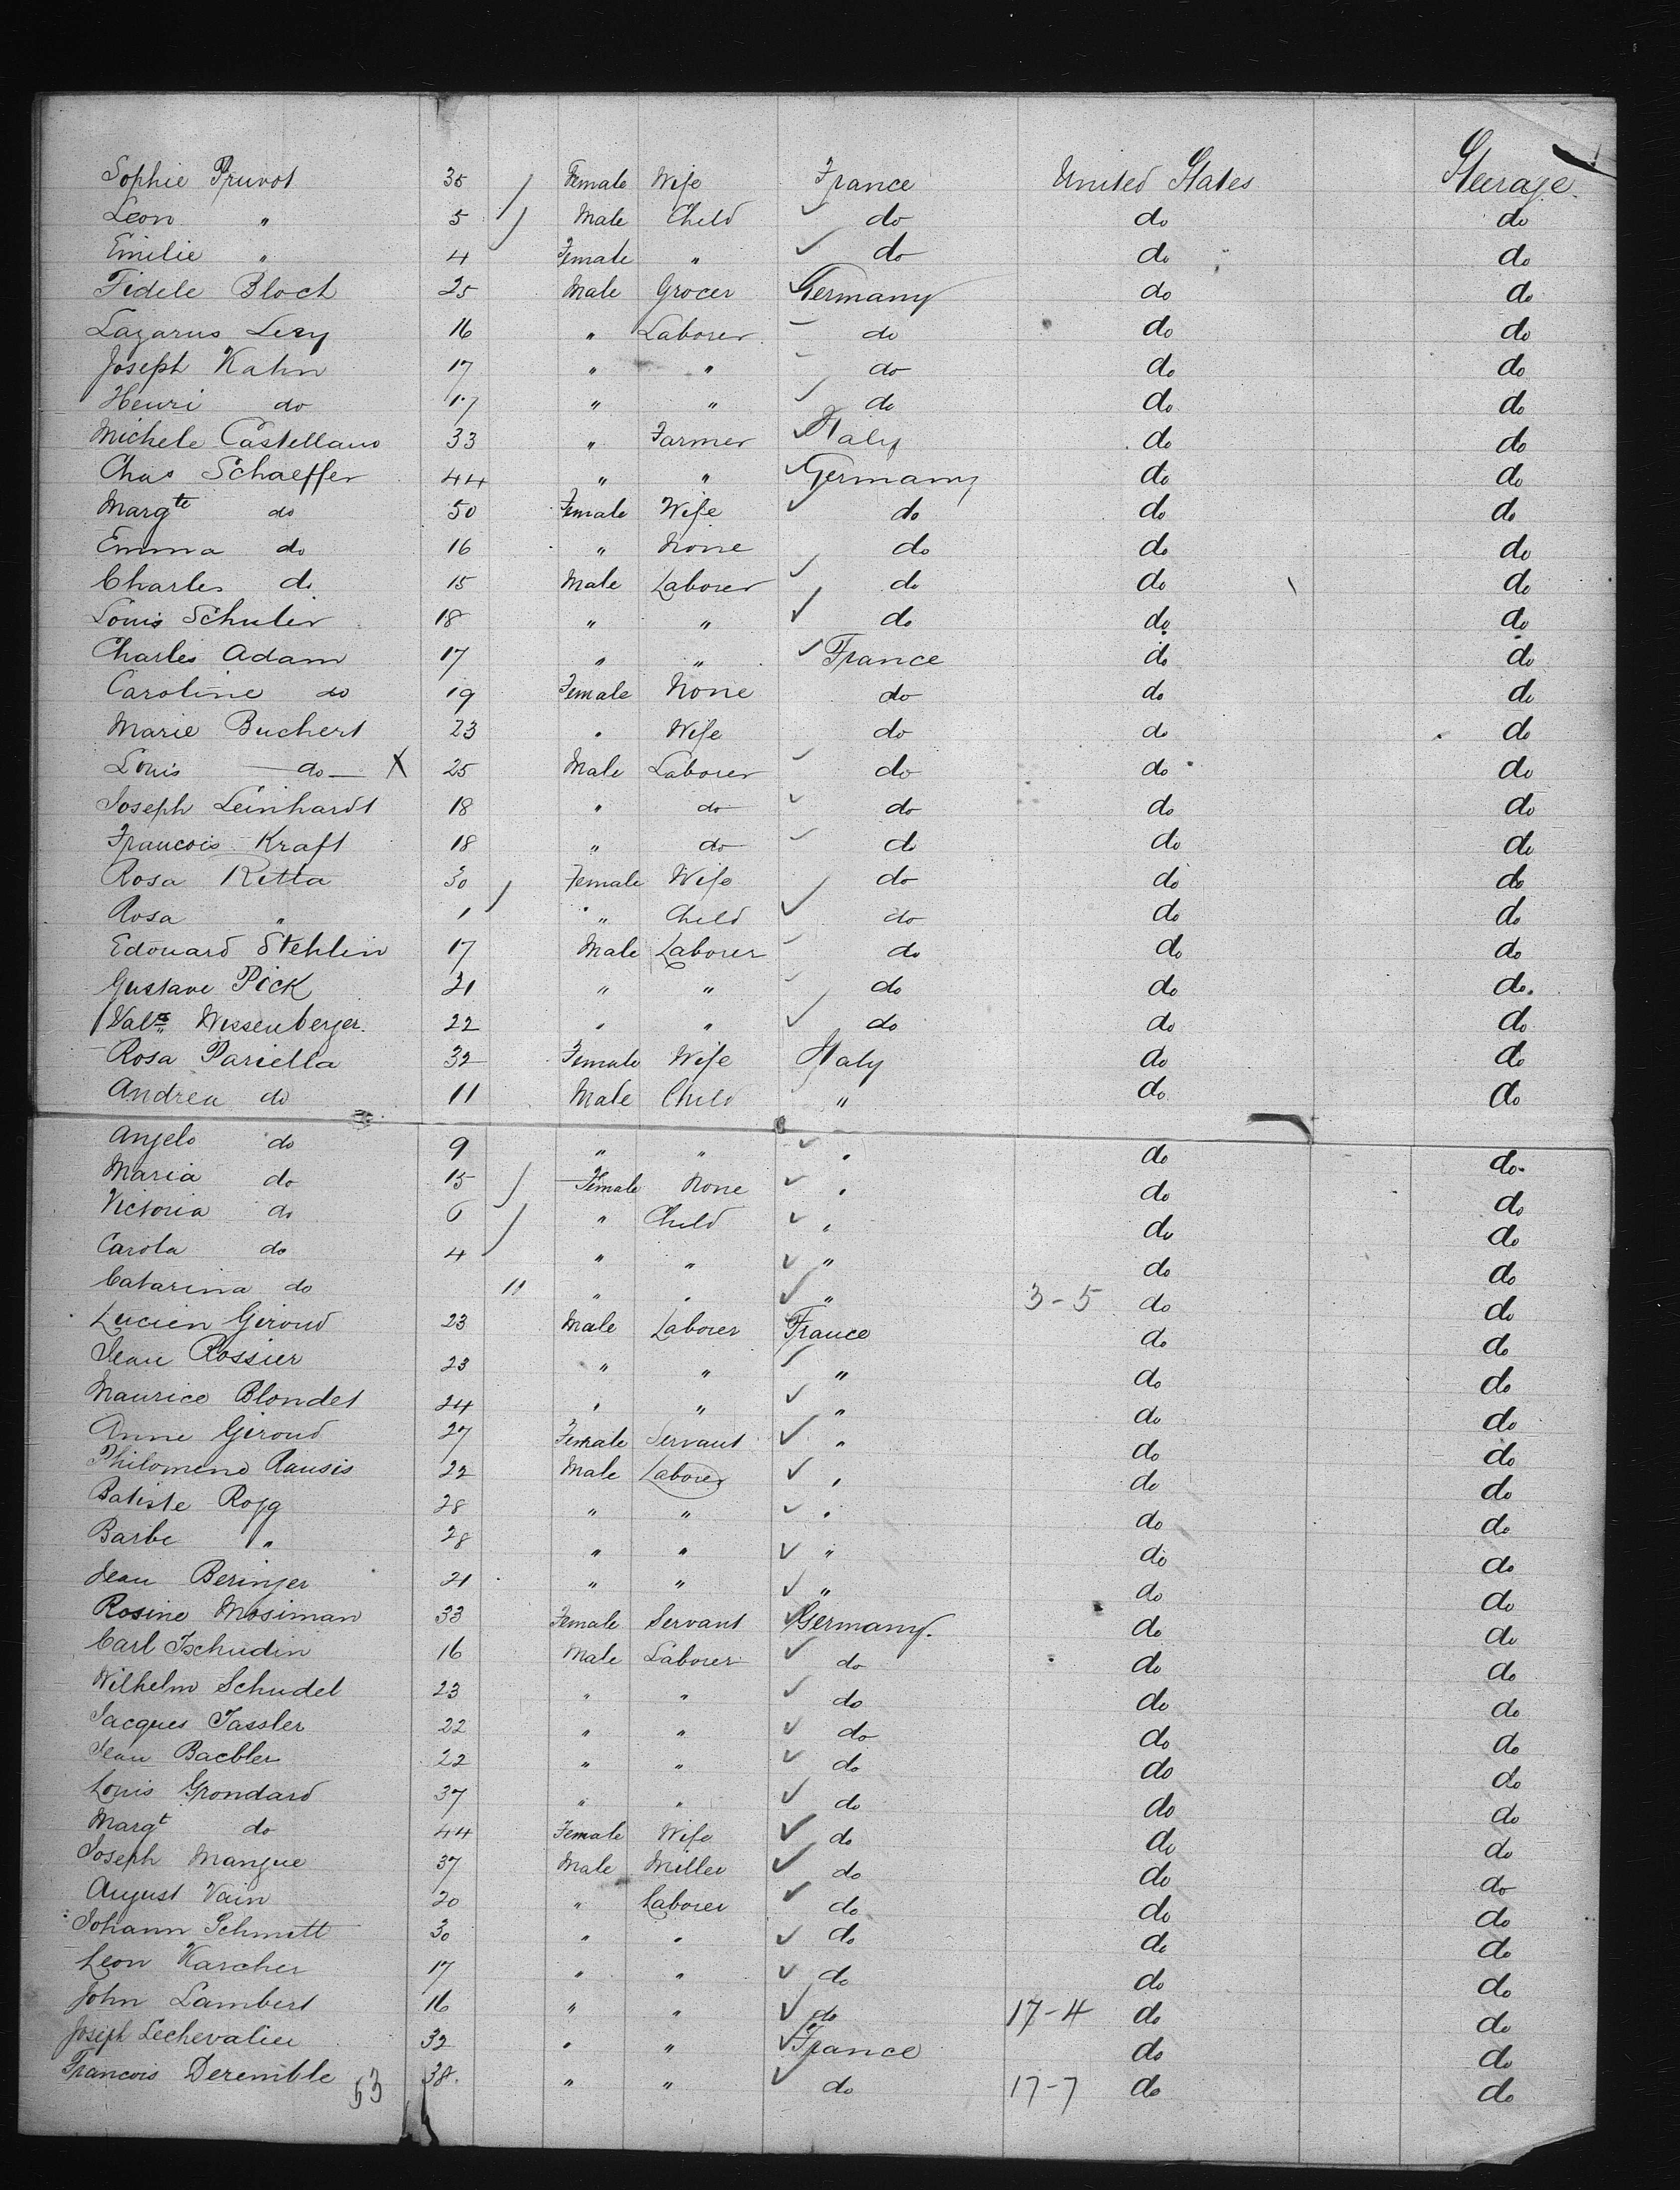 Sophie Pruvot 35 Female Wife France United States Steerage
Leon " 5 Male Child do do do
Emilie " 4 Female " do do do
Fidele Bloch 25 Male Grocer Germany do do
Lazarus Levy 16 " Laborer do do do
Joseph Kahn 17 " " do do do
Henri do 17 " " do do do
Michele Castellano 33 " Farmer Italy do do
Chas Schaeffer 44 " " Germany do do
Margte do 50 Female Wife do do do
Emma do 16 " None do do do
Charles do 15 Male Laborer do do do
Louis Schuler 18 " " do do do
Charles Adam 17 " " France do do
Caroline do 19 Female None do do do
Marie Buchert 23 " Wife do do do
Louis do X 25 Male Laborer do do do
Joseph Leinhardt 18 " do do do do
Francois Kraft 18 " do do do do
Rosa Ritta 30 Female Wife do do do
Rosa " 1 " Child do do do
Edouard Stehlin 17 Male Laborer do do do
Gustave Pick 21 " " do do do.
Wissenberger. 22 " " do do do
Rosa Pariella 32 Female Wife Italy do do
Andrea do 11 Male Child " do do
Angelo do 9 " " " do do
Maria do 15 Female None " do do
Victoria do 6 " Child " do do
Carola do 4 " " " do do
Catarina do 11 " " " 3-5 do do
Lucien Giroud 23 Male Laborer France do do
Jean Rossier 23 " " " do do
Maurice Blondet 24 " " " do do
Anne Giroud 27 Female Servant " do do
Philomene Rausis 22 Male Laborer " do do
Batiste Rogg 28 " " " do do
Barbe " 28 " " " do do
Jean Beringer 21 " " " do do
Rosine Mosiman 33 Female Servant Germany. do do
Carl Tschudin 16 Male Laborer do do do
Wilhelm Schudel 23 " " do do do
Jacques Tassler 22 " " do do do
Jean Baebler 22 " " do do do
Louis Grondard 37 " " do do do
Margt do 44 Female Wife do do do
Joseph Mangue 37 Male Miller do do do
August Vain 20 " Laborer do do do
Johann Schmitt 30 " " do do do
Leon Karcher 17 " " do do do
John Lambert 16 " " do 17-4 do do
Joseph Lechevalier 32 " " France do do
Francois Deremble 38. " " do 17-7 do do
53